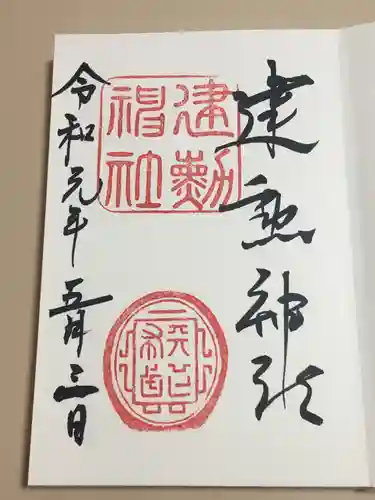 建勲神社
建勲
神社
令和元年五月三日